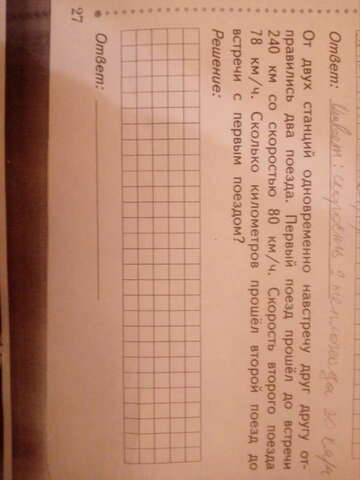 Ответ:
От двух станций одновременно навстречу друг другу от-
правились два поезда. Первый поезд прошёл до встречи
240 км со скоростью 80 км/ч. Скорость второго поезда
78 км/ч. Сколько километров прошёл второй поезд до
встречи с первым поездом?
Решение:
Ответ:
27